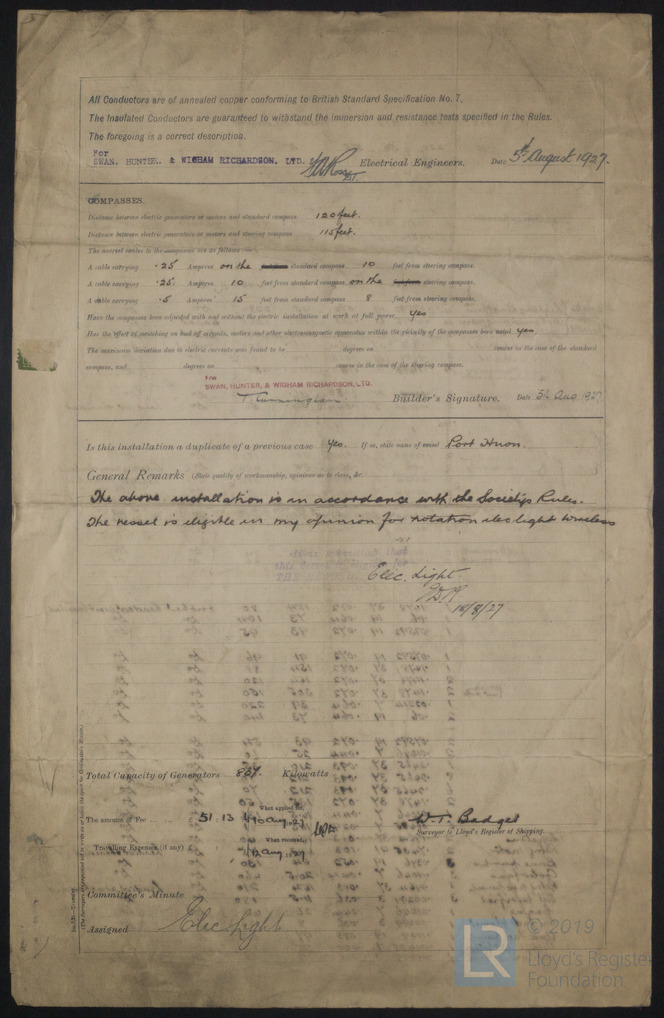 All Conductors are of annealed copper conforming to British Standard Specification No. 7.
The Insulated Conductors are guaranteed to withstand the immersion and resistance tests specified in the Rules.
The foregoing is a correct description.
For
SWAN, HUNTER, & WIGHAM RICHARDSON, LTD. Electrical Engineers. Date 5th August 1927.
COMPASSES.
Distance between electric generators or motors and standard compass 120 feet.
Distance between electric generators or motors and steering compass 115 feet.
The nearest cables to the compasses are as follows:—
A cable carrying .25 Amperes on the standard compass 10 feet from steering compass.
A cable carrying .25 Amperes 10 feet from standard compass on the steering compass.
A cable carrying .5 Amperes 15 feet from standard compass 8 feet from steering compass.
Have the compasses been adjusted with and without the electric installation at work at full power yes
Has the effect of switching on and off circuits, motors and other electromagnetic apparatus within the vicinity of the compasses been noted yes
The maximum deviation due to electric currents was found to be degrees on course in the case of the standard
compass, and degrees on course in the case of the steering compass.
For
SWAN, HUNTER, & WIGHAM RICHARDSON, LTD.
Builder's Signature. Date 5th Aug 1927
Is this installation a duplicate of a previous case yes. If so, state name of vessel Port Huon.
General Remarks (State quality of workmanship, opinions as to class, &c.
The above installation is in accordance with the Society's Rules.
The vessel is eligible in my opinion for notation elec light wireless
Elec. Light
10/8/27
Total Capacity of Generators 857. Kilowatts
When applied for,
The amount of Fee 51:13 10 Aug 27
W. T. Badger
Surveyor to Lloyd's Register of Shipping.
When received,
Travelling Expenses (if any)
Committee's Minute
Assigned Elec Light
LR
© 2019
Lloyd's Register
Foundation